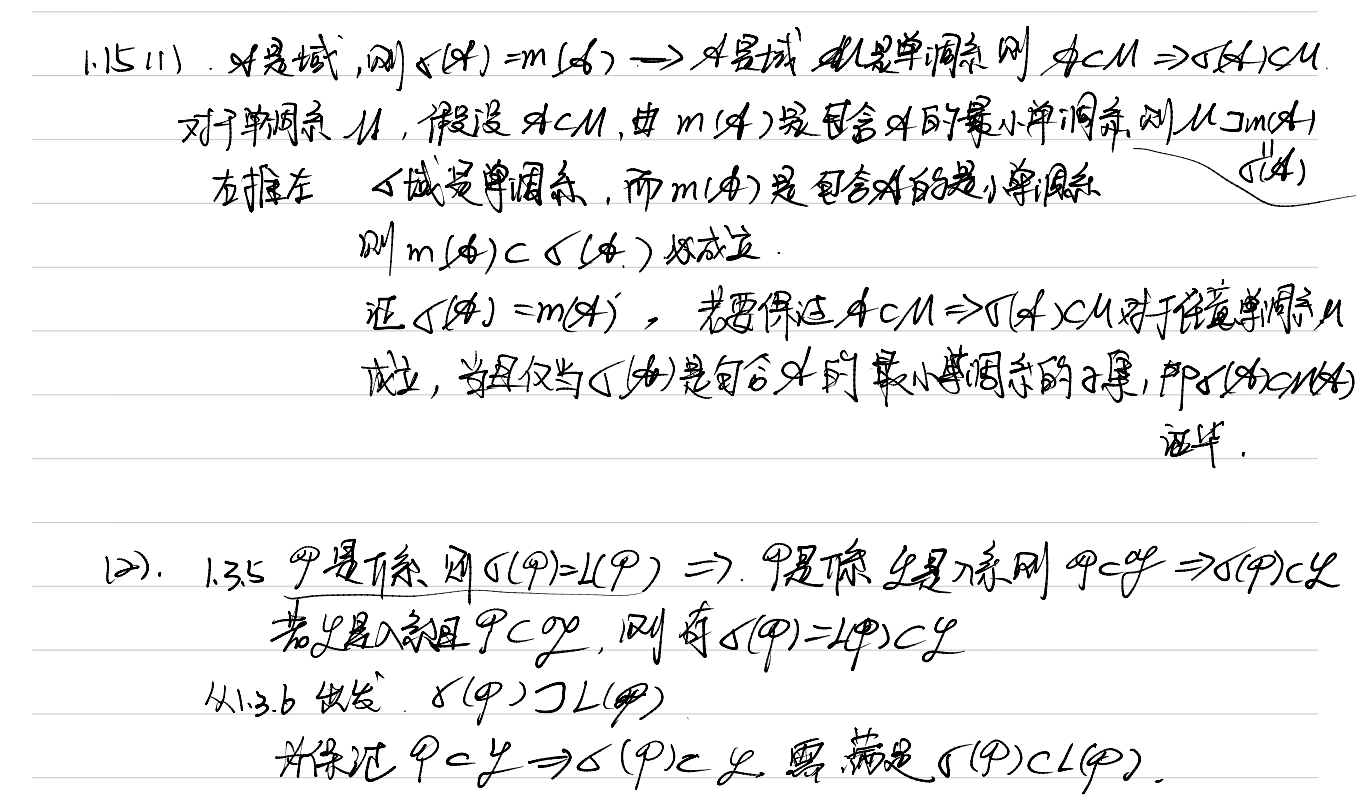 1.15 (1). 𝒜是域,则σ(𝒜)=m(𝒜) → 𝒜是域 ℳ是单调系则 𝒜⊂ℳ ⇒σ(𝒜)⊂ℳ.
对于单调系 ℳ, 假设 𝒜⊂ℳ, 由 m(𝒜)是包含𝒜的最小单调系,则ℳ⊃m(𝒜)
‖
σ(𝒜)
右推左 σ域是单调系, 而m(𝒜)是包含𝒜的最小单调系
则 m(𝒜)⊂σ(𝒜) 必成立.
证 σ(𝒜)=m(𝒜), 若要保证𝒜⊂ℳ⇒σ(𝒜)⊂ℳ对于任意单调系ℳ
成立, 当且仅当σ(𝒜)是包含𝒜的最小单调系的子集, 即σ(𝒜)⊂m(𝒜)
证毕.
(2). 1.3.5 𝒫是π系 则σ(𝒫)=L(𝒫) ⇒. 𝒫是π系 ℒ是λ系则 𝒫⊂ℒ ⇒σ(𝒫)⊂ℒ
若ℒ是λ系且𝒫⊂ℒ, 则有σ(𝒫)=L(𝒫)⊂ℒ
从1.3.6出发. σ(𝒫)⊃L(𝒫)
为保证 𝒫⊂ℒ ⇒σ(𝒫)⊂ℒ. 需满足 σ(𝒫)⊂L(𝒫).